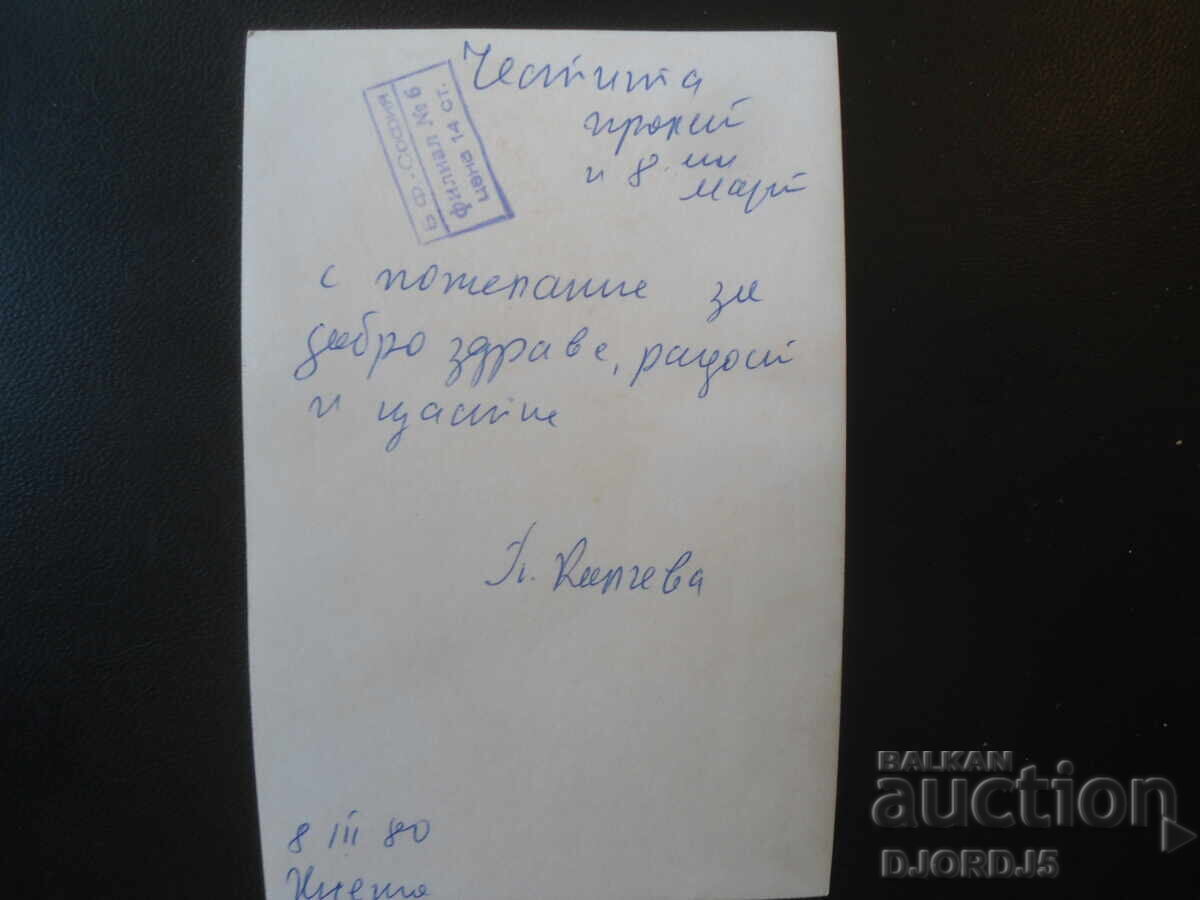 Честита
пролет
и 8 ми
март
БФ - София
филиал № 6
цена 14 ст.
с пожелание за
добро здраве, радост
и щастие
8 III 80
Кнежа
BALKAN
auction
DJORDJ5